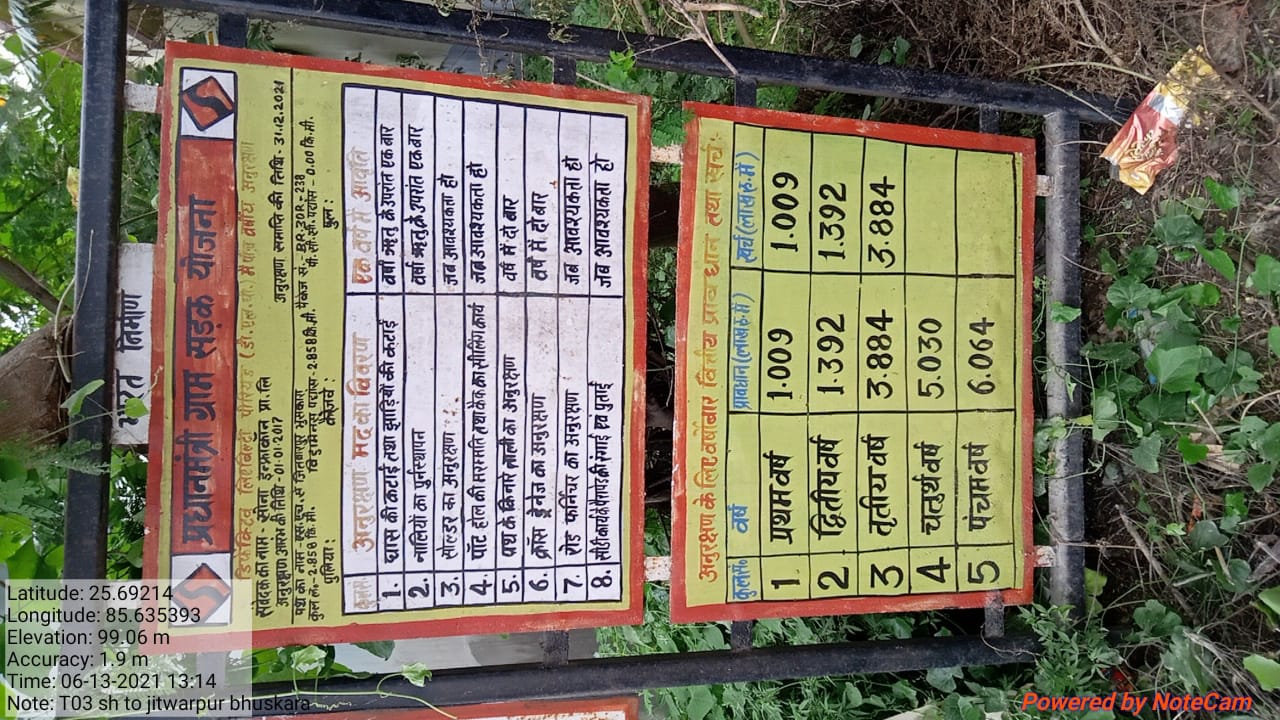 भारत निर्माण
प्रधानमंत्री ग्राम सड़क योजना
डिफेक्टिव लिएबिलिटी पीरियड (डी.एल.पी.) में पंच वर्षीय अनुरक्षण
संवेदक का नाम - सोना इन्फ्राकॉन प्रा.लि
अनुरक्षण आरंभ की तिथि - 01-01-2017 अनुरक्षण समाप्ति की तिथि - 31.12.2021
पथ का नाम - एस.एच से जितवारपुर भुसकारा पैकेज सं. - BR 30R - 238
कुल लं.- 2.858 कि.मी. बिटुमिनस पथांस - 2.858 कि.मी. पी.सी.सी. पथांस - 0.00 कि.मी.
पुलिया : कलभर्ट : पुल :
क्र.सं. अनुरक्षण मद का विवरण एक वर्ष में आवृति
1. घास की कटाई तथा झाड़ियों की कटाई वर्षा ऋतु के उपरांत एक बार
2. नालियों का पुर्नस्थापन वर्षा ऋतु के उपरांत एक बार
3. सोल्डर का अनुरक्षण जब आवश्यकता हो
4. पॉट होल की मरम्मति तथा क्रेक का सीलिंग कार्य जब आवश्यकता हो
5. पथ के किनारे नाली का अनुरक्षण वर्ष में दो बार
6. क्रॉस ड्रेनेज का अनुरक्षण वर्ष में दो बार
7. रोड फर्निचर का अनुरक्षण जब आवश्यकता हो
8. सी.डी. कार्य के पारापेट की रंगाई एवं पुताई जब आवश्यकता हो
अनुरक्षण के लिए वर्षवार वित्तीय प्रावधान तथा खर्च:
क्र.सं. वर्ष प्रावधान (लाख रु. में) खर्च (लाख रु. में)
1 प्रथम वर्ष 1.009 1.009
2 द्वितीय वर्ष 1.392 1.392
3 तृतीय वर्ष 3.884 3.884
4 चतुर्थ वर्ष 5.030
5 पंचम वर्ष 6.064
Latitude: 25.69214
Longitude: 85.635393
Elevation: 99.06 m
Accuracy: 1.9 m
Time: 06-13-2021 13:14
Note: T03 sh to jitwarpur bhuskara
Powered by NoteCam